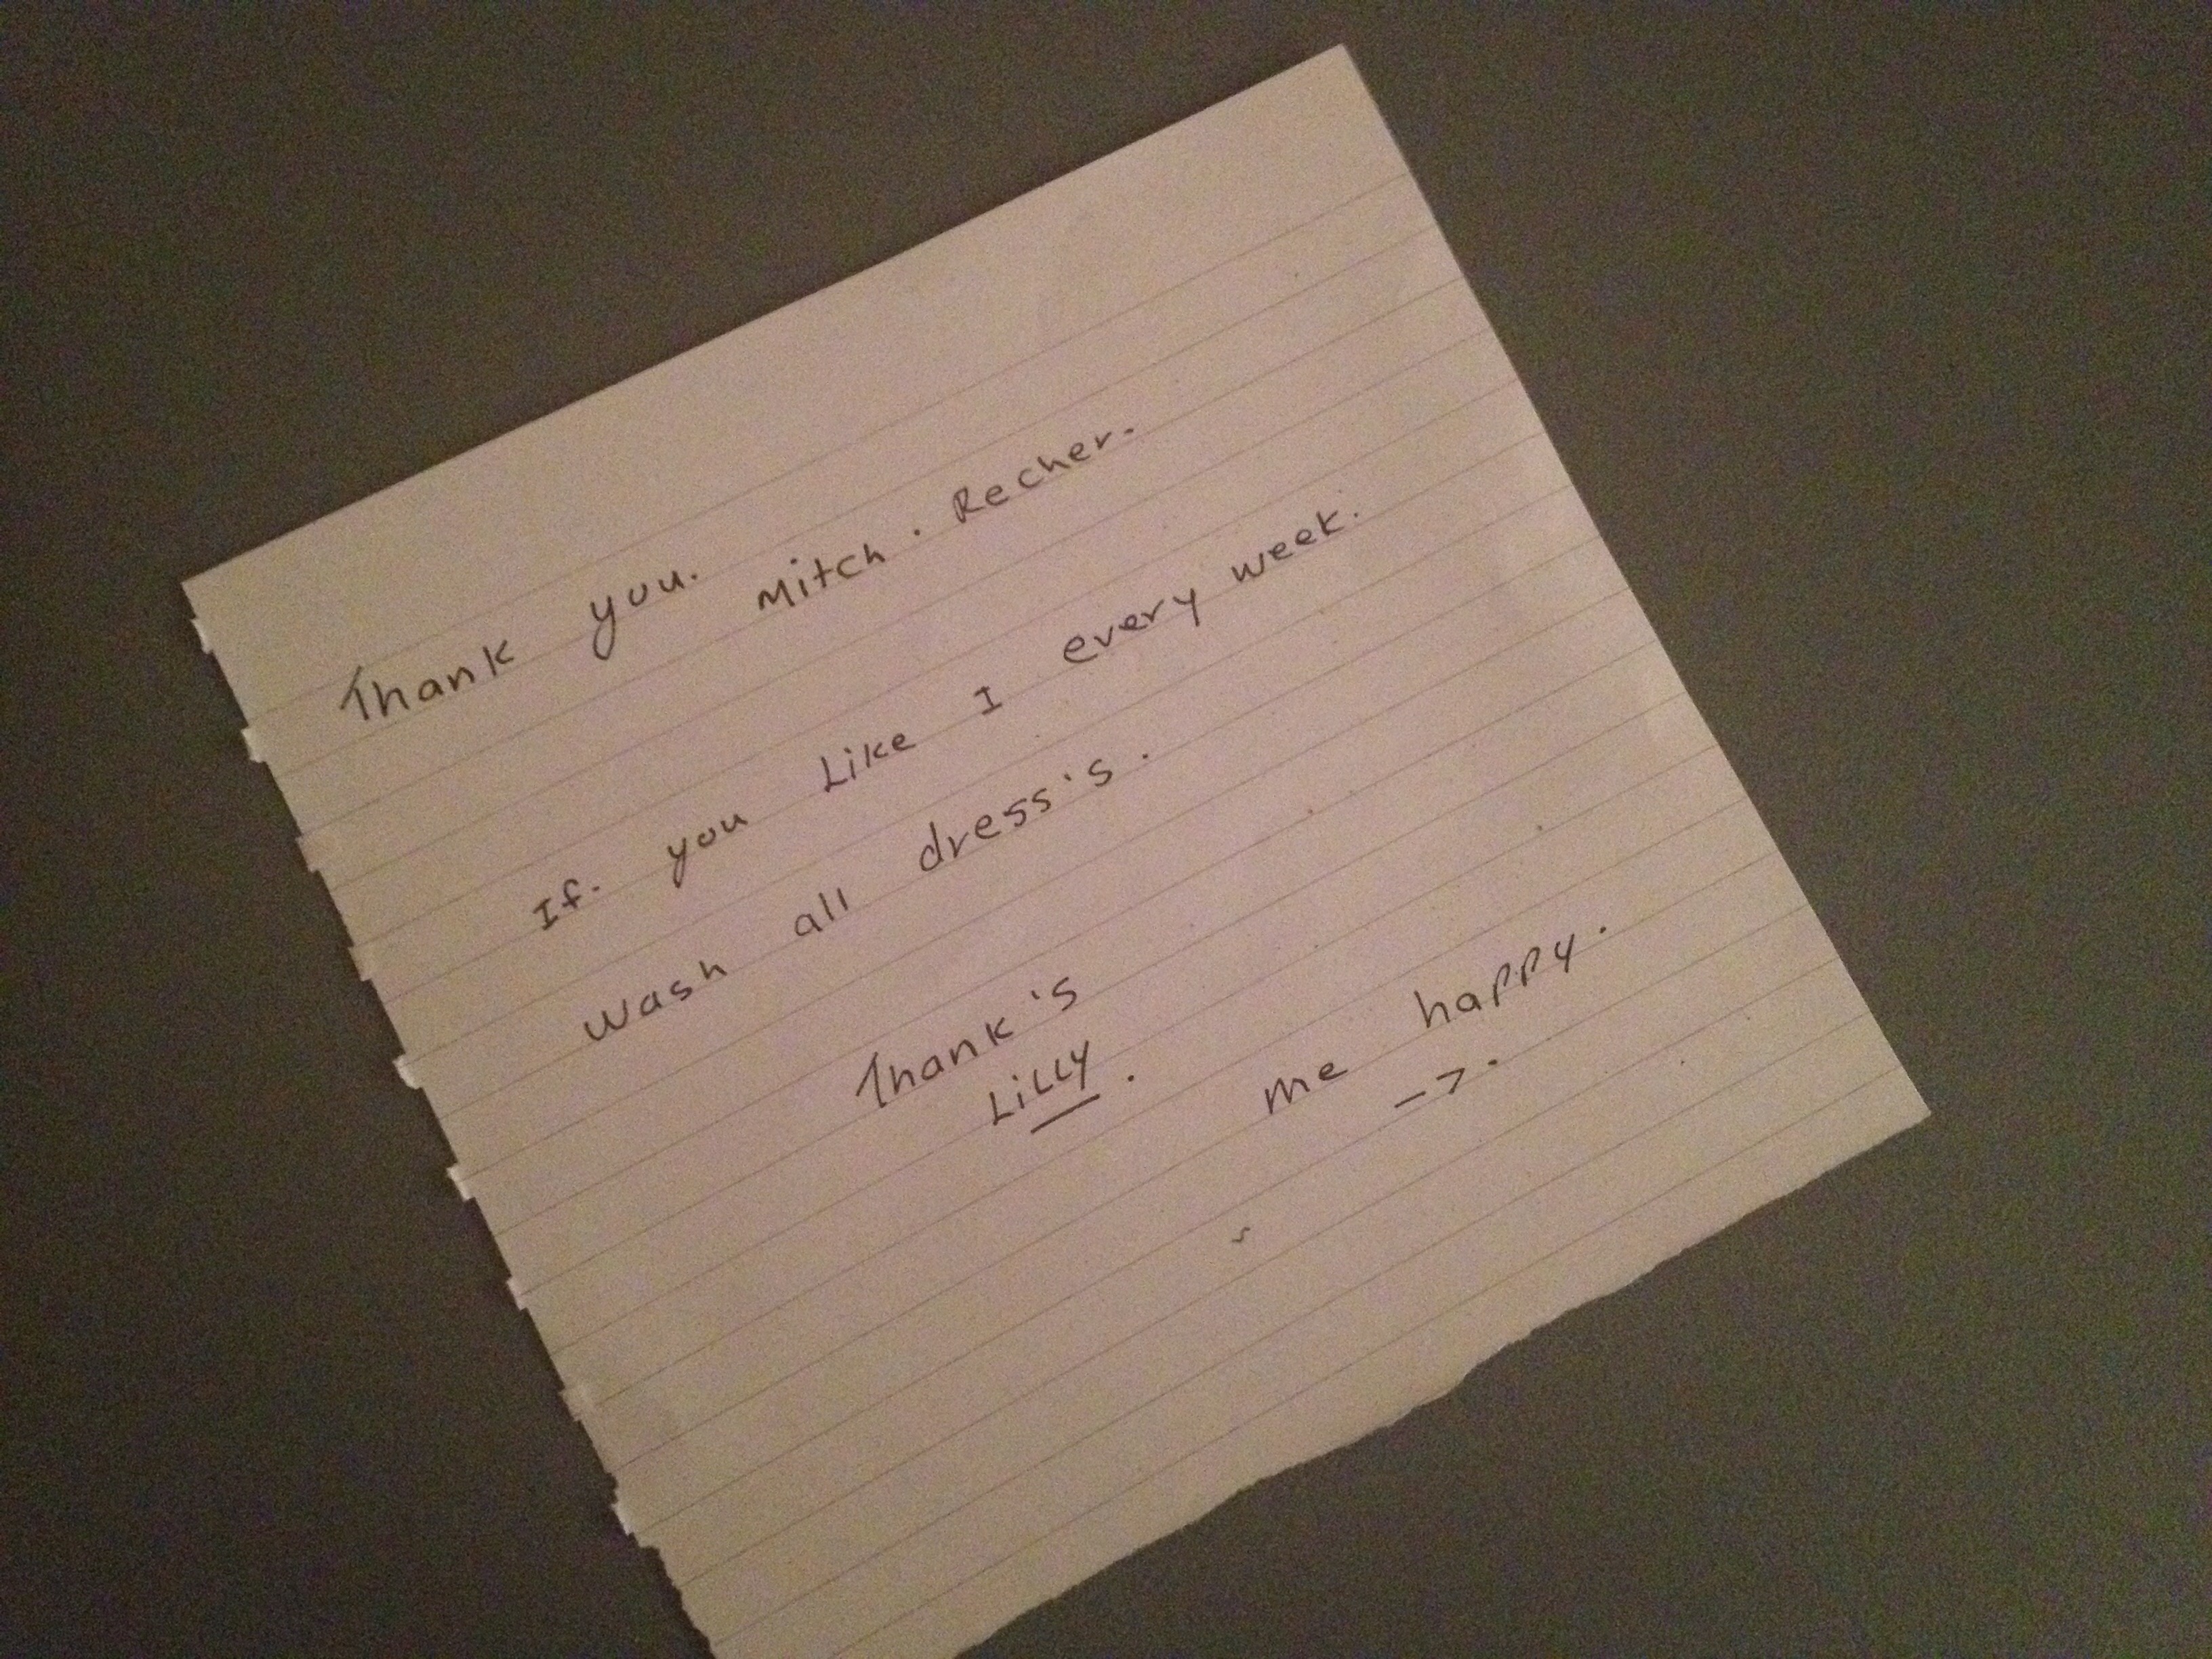 Thank you.
Mitch. Recher.
If. you Like I every week.
Wash all dress's.
Thank's
LiLLY.
me happy.
->.